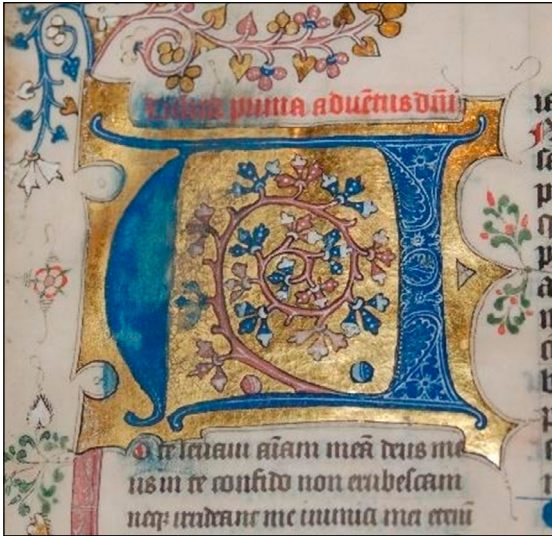 prima aduētus dñi
A
D te leuaui aīam meā deus me
us in te confido non erubescam
neqȝ irrideant me inimici mei eteni̅